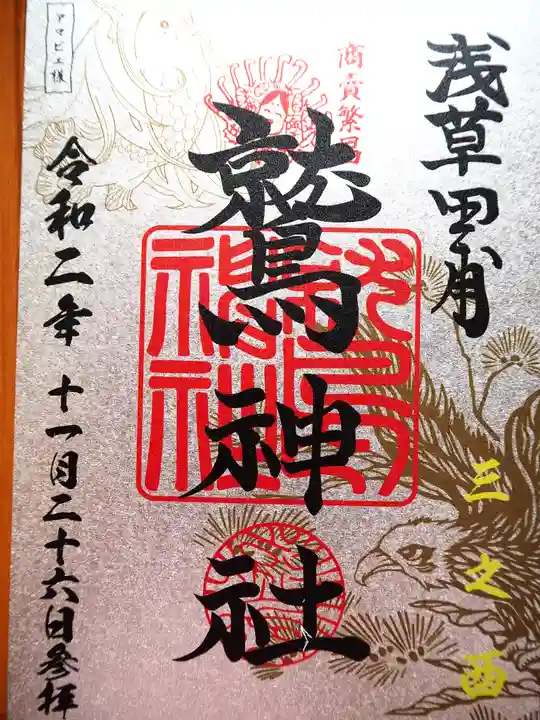 浅草田甫
三之酉
商売繁昌
鷲神社
令和二年 十一月二十六日参拝
アマビエ様